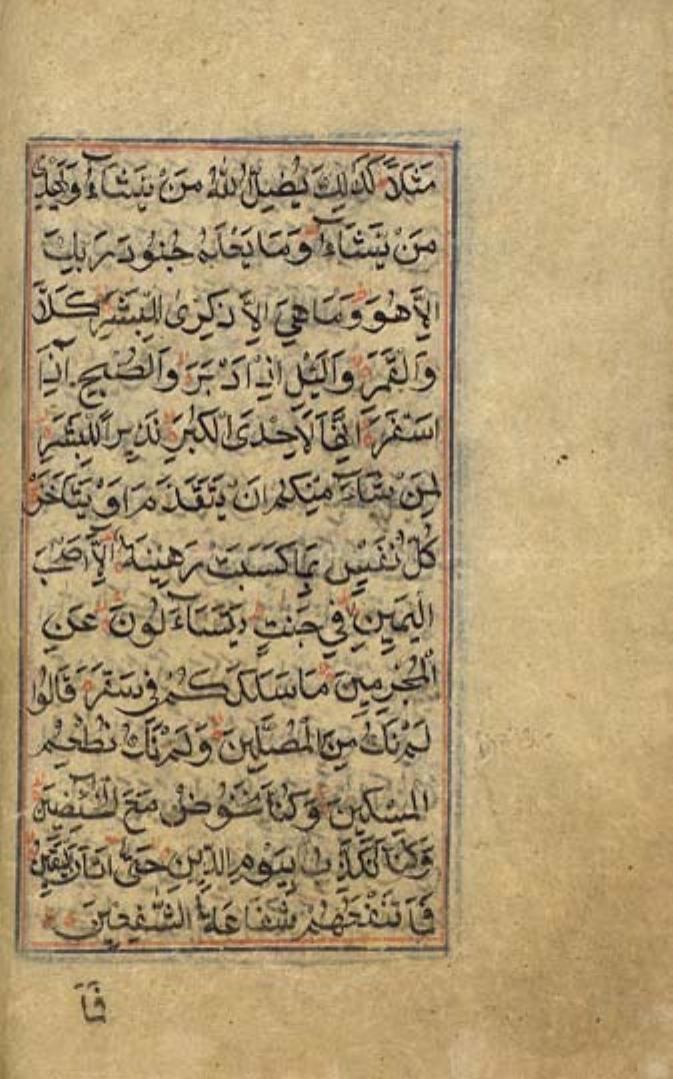 مَثَلًا كَذَٰلِكَ يُضِلُّ اللهُ مَنْ يَشَآءُ وَيَهْدِي
مَنْ يَشَآءُ وَمَا يَعْلَمُ جُنُودَ رَبِّكَ
اِلَّا هُوَ وَمَا هِيَ اِلَّا ذِكْرٰى لِلْبَشَرِ كَلَّا
وَالْقَمَرِ وَالَّيْلِ اِذْ اَدْبَرَ وَالصُّبْحِ اِذَا
اَسْفَرَ اِنَّهَا لَاِحْدَى الْكُبَرِ نَذِيرًا لِلْبَشَرِ
لِمَنْ شَآءَ مِنْكُمْ اَنْ يَتَقَدَّمَ اَوْ يَتَاَخَّرَ
كُلُّ نَفْسٍ بِمَا كَسَبَتْ رَهِينَةٌ اِلَّا اَصْحٰبَ
الْيَمِينِ فِي جَنّٰتٍ يَتَسَآءَلُونَ عَنِ
الْمُجْرِمِينَ مَا سَلَكَكُمْ فِي سَقَرَ قَالُوا
لَمْ نَكُ مِنَ الْمُصَلِّينَ وَلَمْ نَكُ نُطْعِمُ
الْمِسْكِينَ وَكُنَّا نَخُوضُ مَعَ الْخَآئِضِينَ
وَكُنَّا نُكَذِّبُ بِيَوْمِ الدِّينِ حَتّٰى اَتٰنَا الْيَقِينُ
فَمَا تَنْفَعُهُمْ شَفَاعَةُ الشّٰفِعِينَ
فَمَا